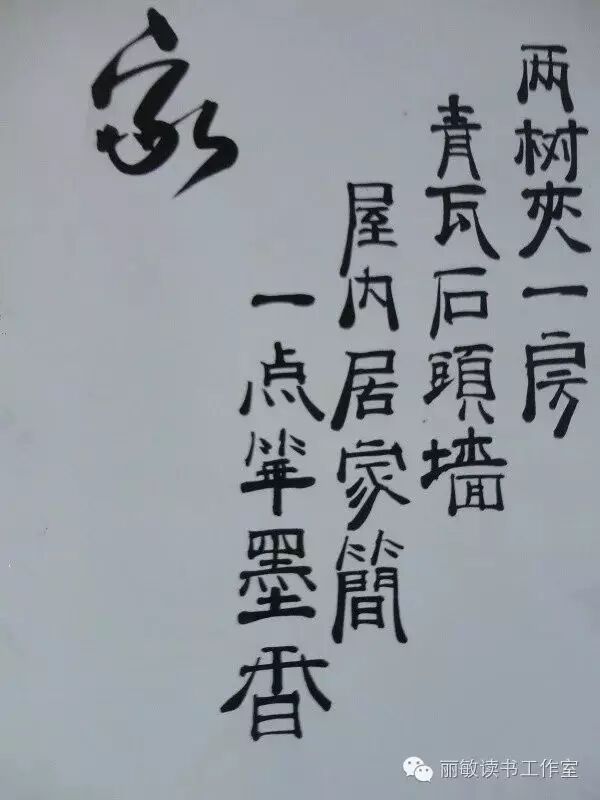 家
两树夹一房
青瓦石頭墙
屋内居家簡
一点筆墨香
丽敏读书工作室